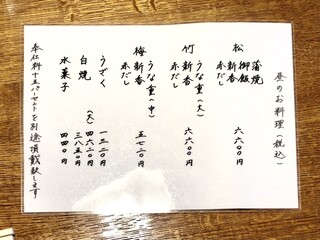 昼のお料理(税込)
松 蒲焼 御飯 新香 赤だし 六六〇〇円
竹 うな重(大) 新香 赤だし 六六〇〇円
梅 うな重(中) 新香 赤だし 五七二〇円
うざく 一三二〇円
白焼 (大) 四六二〇円
三八五〇円
水菓子 四四〇円
奉仕料十五パーセントを別途頂戴致します